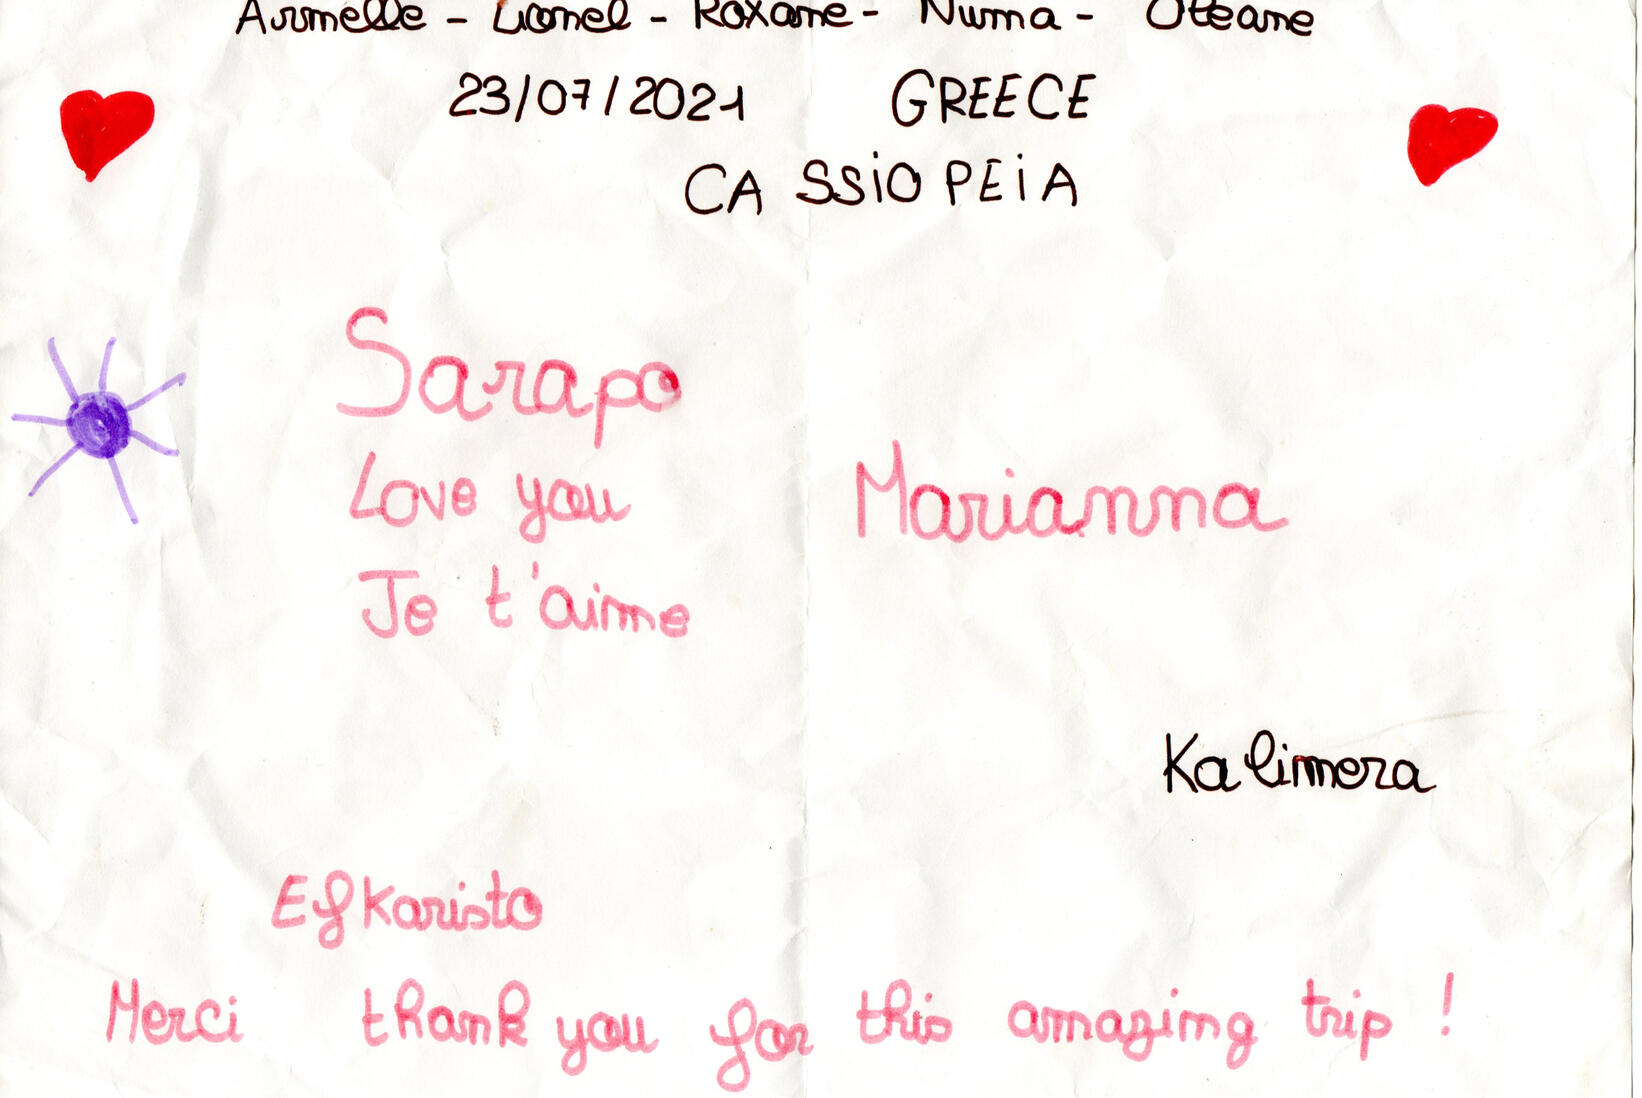 Armelle - Lionel - Roxane - Numa - Oteane
23/07/2021 GREECE
CASSiOPEiA
Sarapo
Love you
Marianna
Je t'aime
Kalimera
Efkaristo
Merci thank you for this amazing trip !